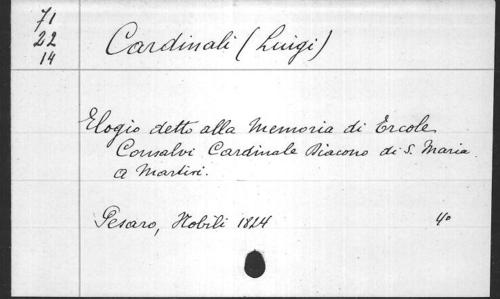 71
22
14
Cardinali (Luigi)
Elogio detto alla Memoria di Ercole
Consalvi Cardinale Diacono di S. Maria
a Martiri.
Pesaro, Nobili 1824 4o